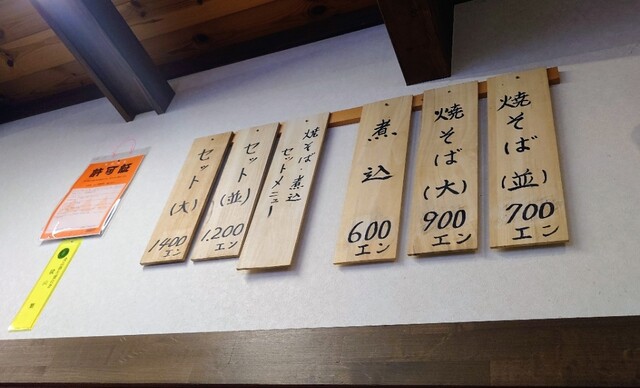 焼そば(並)
700
エン
焼そば(大)
900
エン
煮込
600
エン
焼そば・煮込
セットメニュー
セット(並)
1.200
エン
セット(大)
1400
エン
許可証